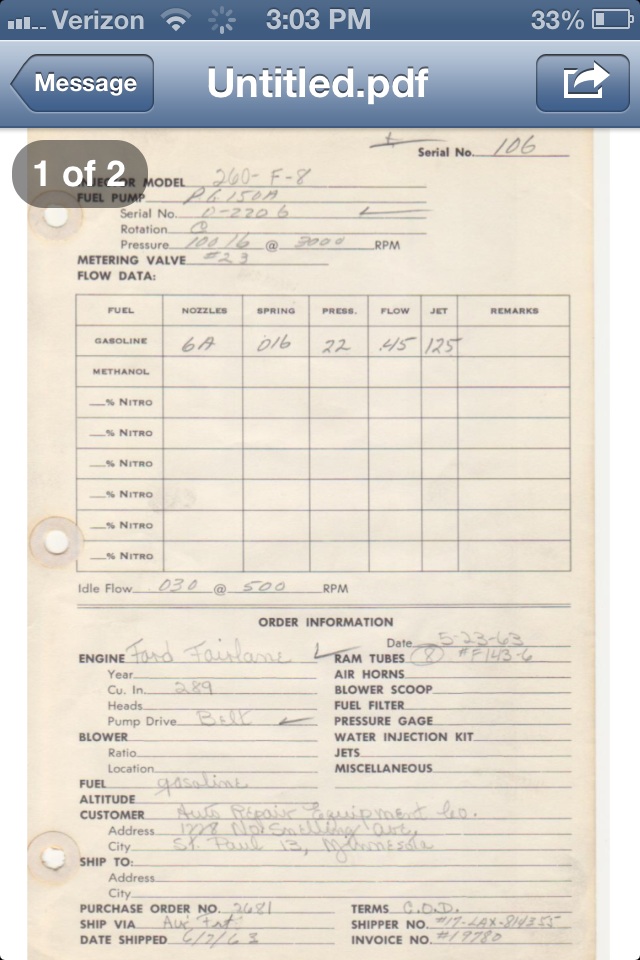 Verizon 3:03 PM 33%
Message Untitled.pdf
1 of 2
Serial No. 106
INJECTOR MODEL 260-F-8
FUEL PUMP PG150A
Serial No. D-2206
Rotation C
Pressure 100 lb @ 3000 RPM
METERING VALVE #23
FLOW DATA:
FUEL NOZZLES SPRING PRESS. FLOW JET REMARKS
GASOLINE 6A 016 22 .45 125
METHANOL
% NITRO
% NITRO
% NITRO
% NITRO
% NITRO
% NITRO
Idle Flow .030 @ 500 RPM
ORDER INFORMATION
Date 5-23-63
ENGINE Ford Fairlane RAM TUBES (8) #F143-6
Year AIR HORNS
Cu. In. 289 BLOWER SCOOP
Heads FUEL FILTER
Pump Drive Belt PRESSURE GAGE
BLOWER WATER INJECTION KIT
Ratio JETS
Location MISCELLANEOUS
FUEL gasoline
ALTITUDE
CUSTOMER Auto Repair Equipment Co.
Address 1728 No. Snelling ave,
City St. Paul 13, Minnesota
SHIP TO:
Address
City
PURCHASE ORDER NO. 2681 TERMS C.O.D.
SHIP VIA Air Frt SHIPPER NO. #17-LAX-814355
DATE SHIPPED 6/7/63 INVOICE NO. #19780